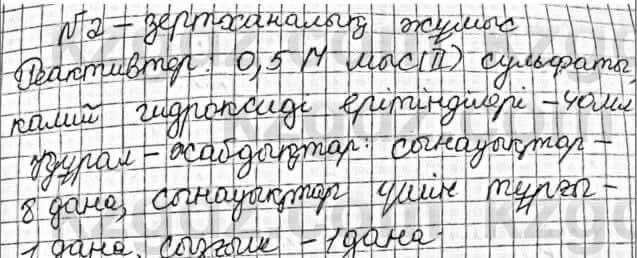 №2 - зертханалық жұмыс
Реактивтер: 0,5 М мыс(II) сульфаты,
калий гидроксиді ерітінділері - 40мл
Құрал - жабдықтар: сынауықтар -
8 дана, сынауықтар үшін тұрғы -
1 дана, сызғыш - 1 дана.